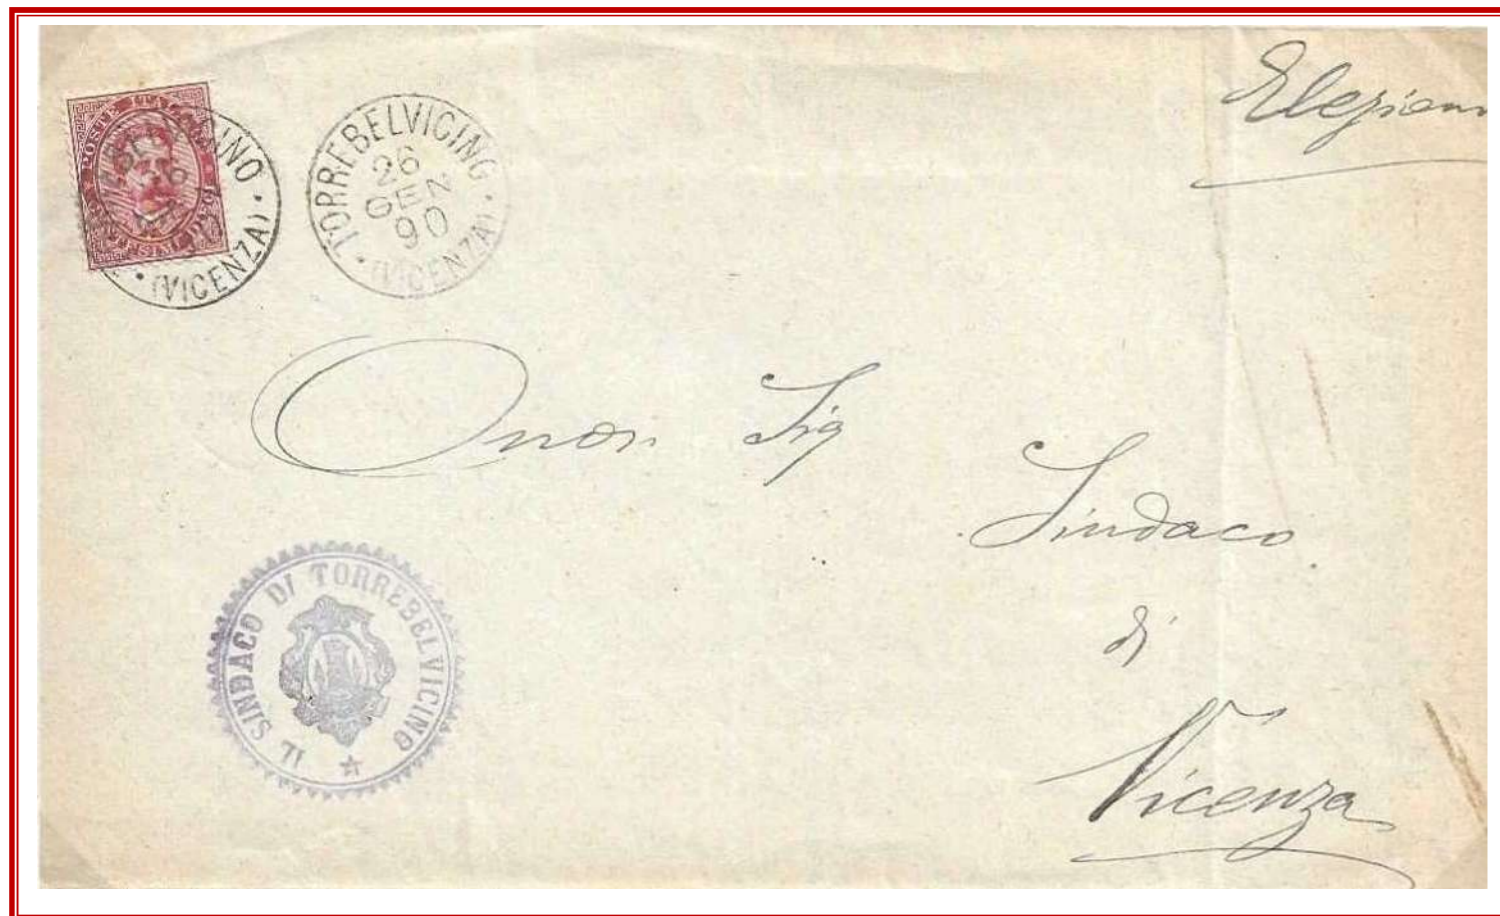 Elezioni
POSTE ITALIANE
(VICENZA)
TORREBELVICINO
26
GEN
90
(VICENZA)
Onor. Sig
Sindaco
di
Vicenza
IL SINDACO DI TORREBELVICINO